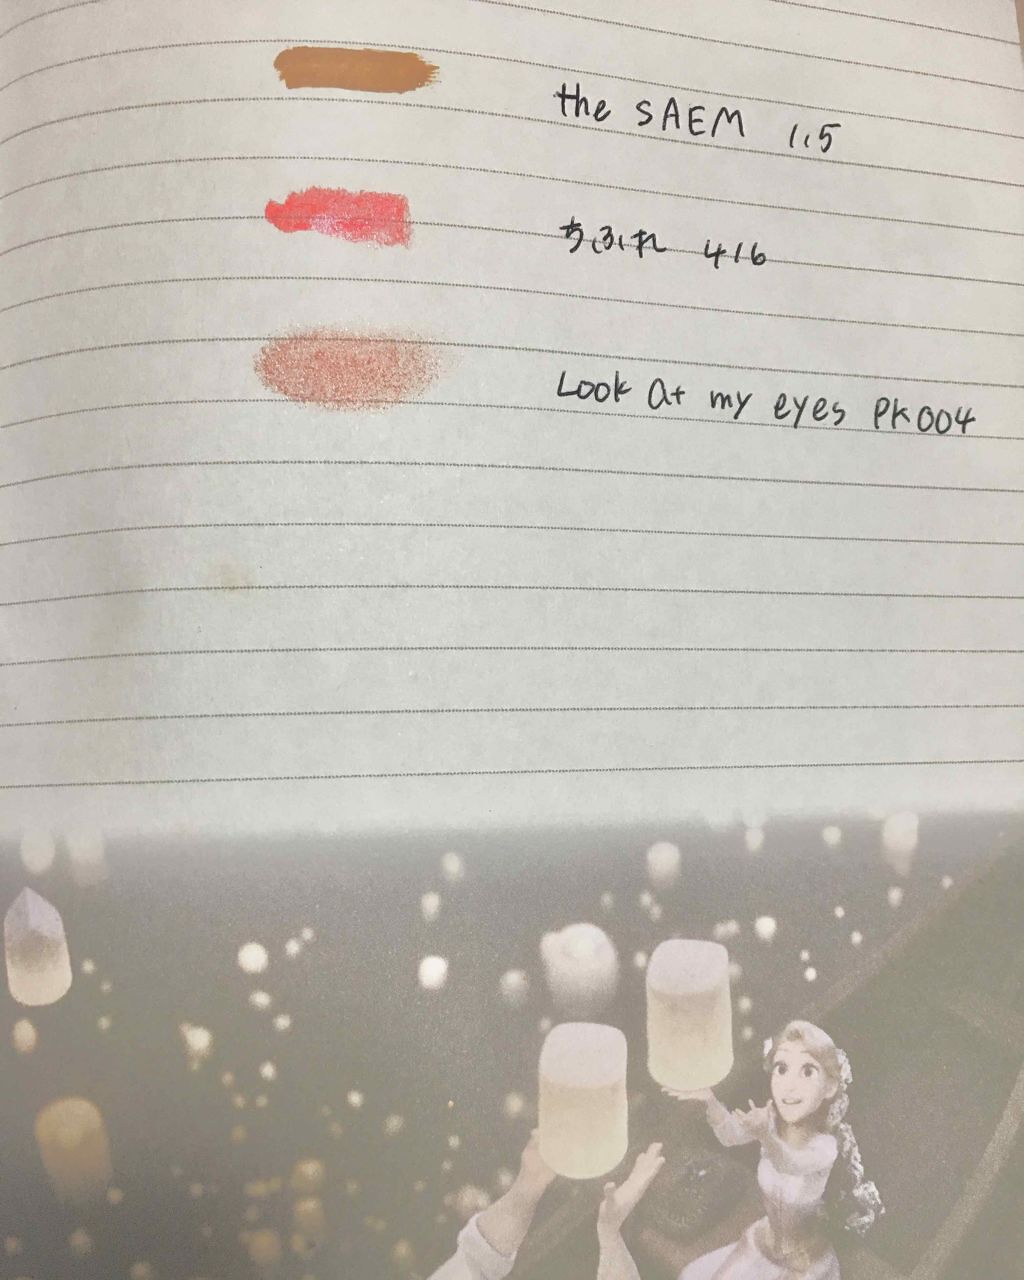 the SAEM 1.5
ちふれ 416
Look at my eyes PK004